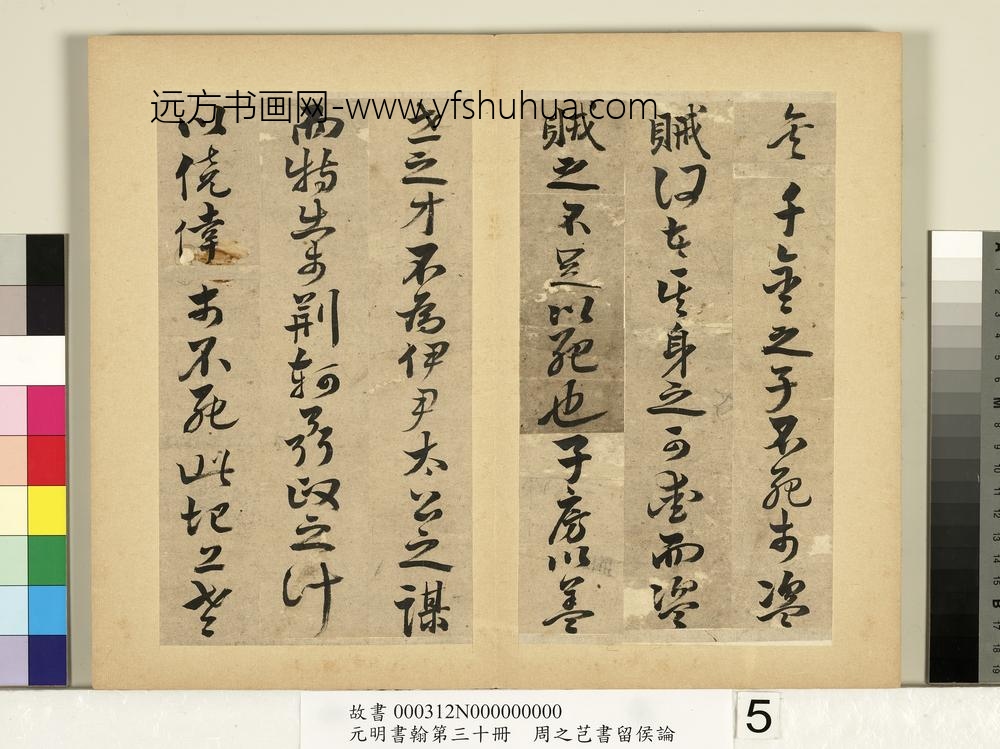 远方书画网-www.yfshuhua.com
矣千金之子不死於盜
賊何者其身之可愛而盜
賊之不足以死也子房以蓋
世之才不為伊尹太公之謀
而特出於荊軻聶政之計
以僥倖於不死此圯上老
故書 000312N000000000
元明書翰第三十冊 周之芑書留侯論
5